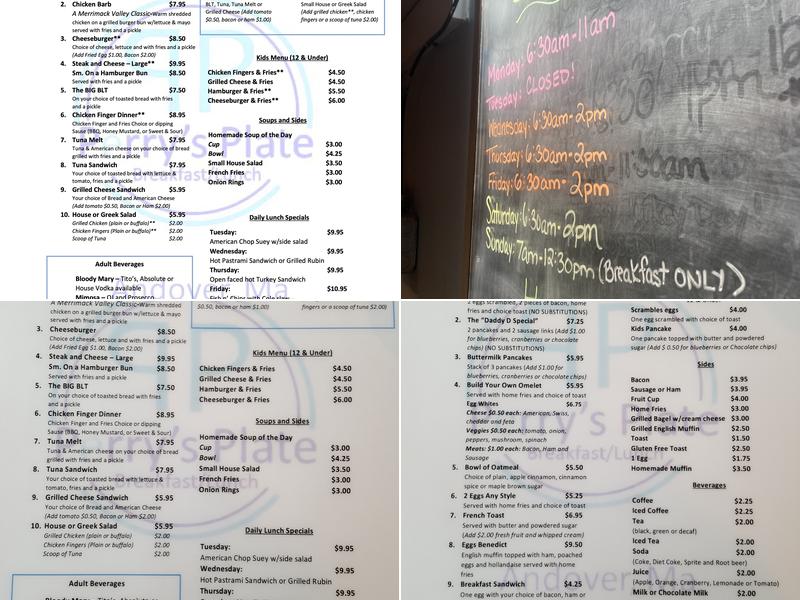 2. Chicken Barb $7.95
A Merrimack Valley Classic-Warm shredded
chicken on a grilled burger bun w/lettuce & mayo
served with fries and a pickle
3. Cheeseburger** $8.50
Choice of cheese, lettuce and with fries and a pickle
(Add Fried Egg $1.00, Bacon $2.00)
4. Steak and Cheese – Large** $9.95
Sm. On a Hamburger Bun $8.50
Served with fries and a pickle
5. The BIG BLT $7.50
On your choice of toasted bread with fries
and a pickle
6. Chicken Finger Dinner** $8.95
Chicken Finger and Fries Choice or dipping
Sauce (BBQ, Honey Mustard, or Sweet & Sour)
7. Tuna Melt $7.95
Tuna & American cheese on your choice of bread
grilled with fries and a pickle
8. Tuna Sandwich $7.95
Your choice of toasted bread with lettuce &
tomato, fries and a pickle
9. Grilled Cheese Sandwich $5.95
Your choice of Bread and American Cheese
(Add tomato $0.50, Bacon or Ham $2.00)
10. House or Greek Salad $5.95
Grilled Chicken (plain or buffalo)** $2.00
Chicken Fingers (Plain or buffalo)** $2.00
Scoop of Tuna $2.00
Adult Beverages
Bloody Mary – Tito's, Absolute or
House Vodka available
Mimosa – OJ and Prosecco
BLT, Tuna, Tuna Melt or
Grilled Cheese (Add tomato
$0.50, bacon or ham $1.00)
Small House or Greek Salad
(Add grilled chicken**, chicken
fingers or a scoop of tuna $2.00)
Kids Menu (12 & Under)
Chicken Fingers & Fries** $4.50
Grilled Cheese & Fries $4.50
Hamburger & Fries** $5.50
Cheeseburger & Fries** $6.00
Soups and Sides
Homemade Soup of the Day
Cup $3.00
Bowl $4.25
Small House Salad $3.50
French Fries $3.00
Onion Rings $3.00
Daily Lunch Specials
Tuesday: $9.95
American Chop Suey w/side salad
Wednesday: $9.95
Hot Pastrami Sandwich or Grilled Rubin
Thursday: $9.95
Open faced hot Turkey Sandwich
Friday: $10.95
Fish n' Chips with Cole slaw
rry's Plate
Breakfast/Lunch
Andover, Ma
Monday: 6:30am-11am
Tuesday: CLOSED!
Wednesday: 6:30am-2pm
Thursday: 6:30am-2pm
Friday: 6:30am-2pm
Saturday: 6:30am-2pm
Sunday: 7am-12:30pm (Breakfast ONLY)
A Merrimack Valley Classic-Warm shredded
chicken on a grilled burger bun w/lettuce & mayo
served with fries and a pickle
3. Cheeseburger $8.50
Choice of cheese, lettuce and with fries and a pickle
(Add Fried Egg $1.00, Bacon $2.00)
4. Steak and Cheese – Large $9.95
Sm. On a Hamburger Bun $8.50
Served with fries and a pickle
5. The BIG BLT $7.50
On your choice of toasted bread with fries
and a pickle
6. Chicken Finger Dinner $8.95
Chicken Finger and Fries Choice or dipping
Sauce (BBQ, Honey Mustard, or Sweet & Sour)
7. Tuna Melt $7.95
Tuna & American cheese on your choice of bread
grilled with fries and a pickle
8. Tuna Sandwich $7.95
Your choice of toasted bread with lettuce &
tomato, fries and a pickle
9. Grilled Cheese Sandwich $5.95
Your choice of Bread and American Cheese
(Add tomato $0.50, Bacon or Ham $2.00)
10. House or Greek Salad $5.95
Grilled Chicken (plain or buffalo) $2.00
Chicken Fingers (Plain or buffalo) $2.00
Scoop of Tuna $2.00
Adult Beverages
$0.50, bacon or ham $1.00)
fingers or a scoop of tuna $2.00)
Kids Menu (12 & Under)
Chicken Fingers & Fries $4.50
Grilled Cheese & Fries $4.50
Hamburger & Fries $5.50
Cheeseburger & Fries $6.00
Soups and Sides
Homemade Soup of the Day
Cup $3.00
Bowl $4.25
Small House Salad $3.50
French Fries $3.00
Onion Rings $3.00
Daily Lunch Specials
Tuesday: $9.95
American Chop Suey w/side salad
Wednesday: $9.95
Hot Pastrami Sandwich or Grilled Rubin
Thursday: $9.95
2 eggs scrambled, 2 pieces of bacon, home
fries and choice toast (NO SUBSTITUTIONS)
2. The "Daddy D Special" $7.25
2 pancakes and 2 sausage links (Add $1.00
for blueberries, cranberries or chocolate
chips) (NO SUBSTITUTIONS)
3. Buttermilk Pancakes $5.95
Stack of 3 pancakes (Add $1.00 for
blueberries, cranberries or chocolate chips)
4. Build Your Own Omelet $5.95
Served with home fries and choice of toast
Egg Whites $6.75
Cheese $0.50 each: American, Swiss,
cheddar and feta
Veggies $0.50 each: tomato, onion,
peppers, mushroom, spinach
Meats: $1.00 each: Bacon, Ham and
Sausage
5. Bowl of Oatmeal $5.50
Choice of plain, apple cinnamon, cinnamon
spice or maple brown sugar
6. 2 Eggs Any Style $5.25
Served with home fries and choice of toast
7. French Toast $6.95
Served with butter and powdered sugar
(Add $2.00 fresh fruit and whipped cream)
8. Eggs Benedict $9.50
English muffin topped with ham, poached
eggs and hollandaise served with home
fries
9. Breakfast Sandwich $4.25
One egg with your choice of bacon, ham or
Scrambles eggs $4.00
One egg scrambled with choice of toast
Kids Pancake $4.00
One pancake topped with butter and powdered
sugar (Add $ 0.50 for blueberries or Chocolate chips)
Sides
Bacon $3.95
Sausage or Ham $3.95
Fruit Cup $4.00
Home Fries $3.00
Grilled Bagel w/cream cheese $3.00
Grilled English Muffin $2.50
Toast $1.50
Gluten Free Toast $2.50
1 Egg $1.75
Homemade Muffin $3.50
Beverages
Coffee $2.25
Iced Coffee $2.25
Tea $2.00
(black, green or decaf)
Iced Tea $2.00
Soda $2.00
(Coke, Diet Coke, Sprite and Root beer)
Juice $2.00
(Apple, Orange, Cranberry, Lemonade or Tomato)
Milk or Chocolate Milk $2.00